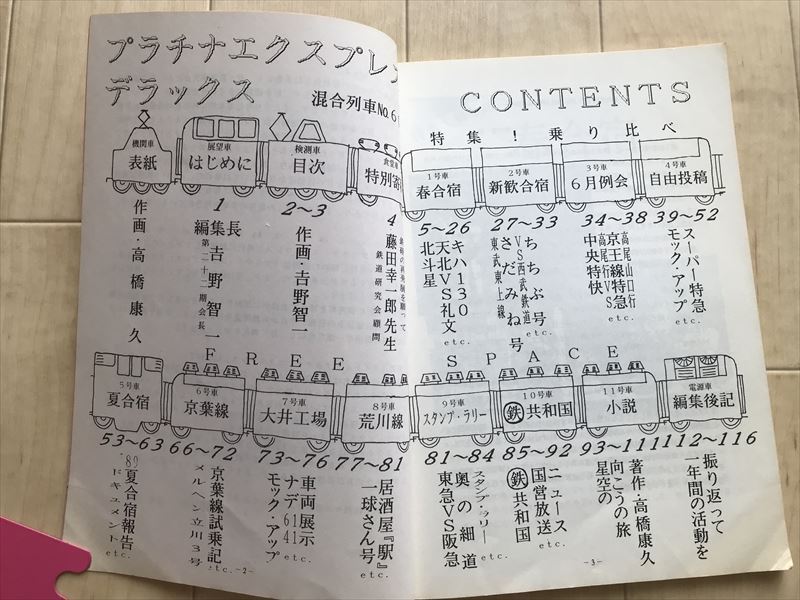 プラチナエクスプレス
デラックス
混合列車NO.6
CONTENTS
特集!乗り比べ
機関車
表紙
作画・高橋康久
展望車
はじめに
1
編集長
吉野智一
第二十二期会長
検測車
目次
2~3
作画・吉野智一
特別寄
4
藤田幸一郎先生
鉄道研究会顧問
1号車
春合宿
5~26
キハ130
天北VS礼文
北斗星
etc.
2号車
新歓合宿
27~33
ちちぶ号
VS西武鉄道
さだみね号
東武東上線
etc.
3号車
6月例会
34~38
高尾山口行
京王線特急
高尾行VS
中央特快
4号車
自由投稿
39~52
スーパー特急
モック・アップ
etc.
FREE SPACE
5号車
夏合宿
53~63
'89夏合宿報告
ドキュメント
etc.
6号車
京葉線
66~72
京葉線試乗記
メルヘン立川3号
etc.
7号車
大井工場
73~76
車両展示
ナデ6141
モック・アップ
etc.
8号車
荒川線
77~81
居酒屋『駅』
一球さん号
etc.
9号車
スタンプ・ラリー
81~84
スタンプ・ラリー
奥の細道
東急VS阪急
etc.
10号車
鉄共和国
85~92
ニュース
国営放送
鉄共和国
etc.
11号車
小説
93~111
著作・高橋康久
向こうの旅
星空の
電源車
編集後記
112~116
振り返って
一年間の活動を
-2-
-3-